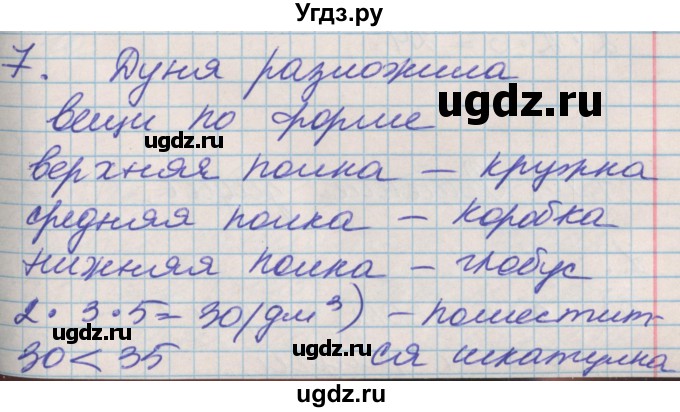 Угдз.ру
7. Дуня разложила
вещи по форме
ugdz.ru
ugdz.ru
верхняя полка – кружка
средняя полка – коробка
нижняя полка – глобус
ugdz.ru
ugdz.ru
2 · 3 · 5 = 30 (дм³) – поместит-
30 < 35 ся шкатулка
ugdz.ru
ugdz.ru